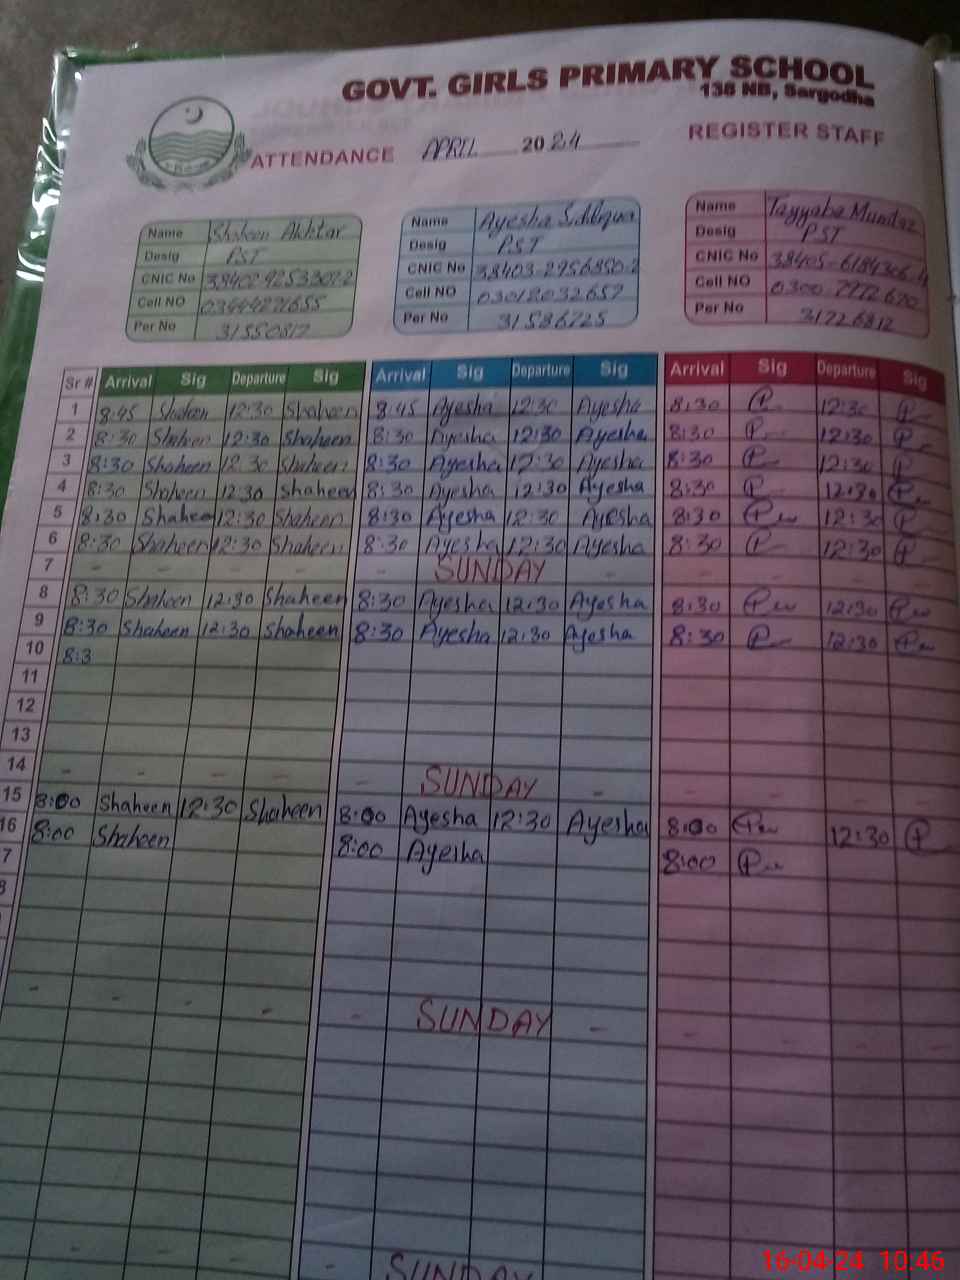 GOVT. GIRLS PRIMARY SCHOOL
138 NB, Sargodha
ATTENDANCE APRIL 2024 REGISTER STAFF
Name Shaheen Akhtar Name Ayesha Siddiqua Name Tayyaba Mumtaz
Desig PST Desig PST Desig PST
CNIC No CNIC No CNIC No
Cell NO 03444271655 Cell NO 03018032657 Cell NO
Per No Per No 31586725 Per No 31726812
Sr # Arrival Sig Departure Sig Arrival Sig Departure Sig Arrival Sig Departure Sig
1 8:45 Shaheen 12:30 Shaheen 8:45 Ayesha 12:30 Ayesha 8:30 12:30
2 8:30 Shaheen 12:30 Shaheen 8:30 Ayesha 12:30 Ayesha 8:30 12:30
3 8:30 Shaheen 12:30 Shaheen 8:30 Ayesha 12:30 Ayesha 8:30 12:30
4 8:30 Shaheen 12:30 Shaheen 8:30 Ayesha 12:30 Ayesha 8:30 12:30
5 8:30 Shaheen 12:30 Shaheen 8:30 Ayesha 12:30 Ayesha 8:30 12:30
6 8:30 Shaheen 12:30 Shaheen 8:30 Ayesha 12:30 Ayesha 8:30 12:30
7 - - - - - SUNDAY - - - - -
8 8:30 Shaheen 12:30 Shaheen 8:30 Ayesha 12:30 Ayesha 8:30 12:30
9 8:30 Shaheen 12:30 Shaheen 8:30 Ayesha 12:30 Ayesha 8:30 12:30
10 8:3
11
12
13
14 - - - - - SUNDAY - - - - -
15 8:00 Shaheen 12:30 Shaheen 8:00 Ayesha 12:30 Ayesha 8:00 12:30
16 8:00 Shaheen 8:00 Ayesha 8:00
7
8
- - - - SUNDAY - - - - -
- - - SUNDAY
16-04-24 10:46